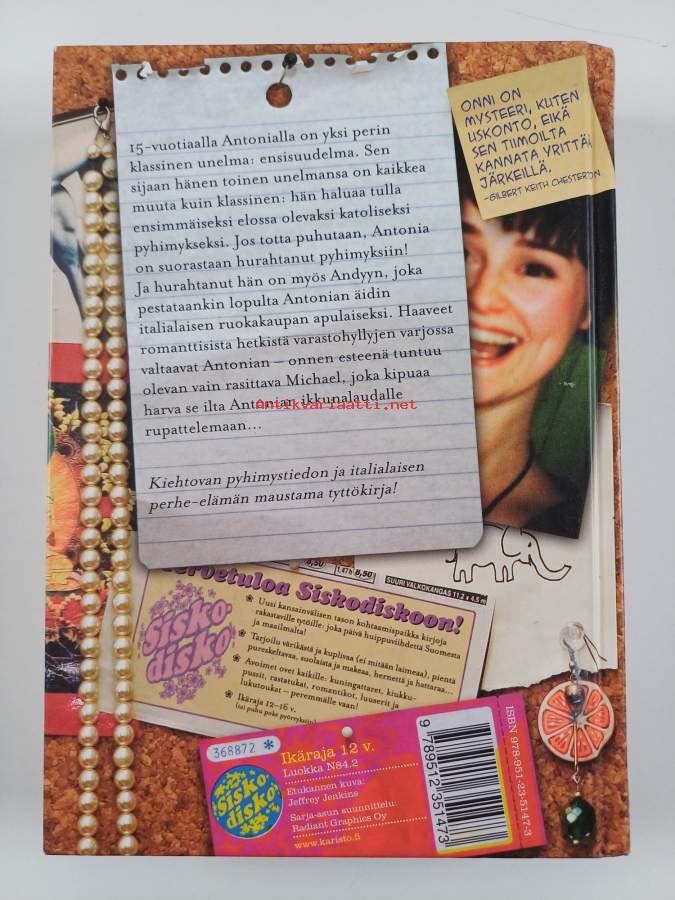 15-vuotiaalla Antonialla on yksi perin
klassinen unelma: ensisuudelma. Sen
sijaan hänen toinen unelmansa on kaikkea
muuta kuin klassinen: hän haluaa tulla
ensimmäiseksi elossa olevaksi katoliseksi
pyhimykseksi. Jos totta puhutaan, Antonia
on suorastaan hurahtanut pyhimyksiin!
Ja hurahtanut hän on myös Andyyn, joka
pestataankin lopulta Antonian äidin
italialaisen ruokakaupan apulaiseksi. Haaveet
romanttisista hetkistä varastohyllyjen varjossa
valtaavat Antonian – onnen esteenä tuntuu
olevan vain rasittava Michael, joka kipuaa
harva se ilta Antonian ikkunalaudalle
rupattelemaan...
Kiehtovan pyhimystiedon ja italialaisen
perhe-elämän maustama tyttökirja!
ONNI ON
MYSTEERI, KUTEN
USKONTO, EIKÄ
SEN TIIMOILTA
KANNATA YRITTÄÄ
JÄRKEILLÄ.
-GILBERT KEITH CHESTERTON
Antikvariaatti.net
SUURI VALKOKANGAS 11,2 x 4,5 m
Tervetuloa Siskodiskoon!
Sisko-
disko
Uusi kansainvälisen tason kohtaamispaikka kirjoja
rakastaville tytöille: joka päivä huippuviihdettä Suomesta
ja maailmalta!
Tarjoilu värikästä ja kuplivaa (ei mitään laimeaa), pientä
pureskeltavaa, suolaista ja makeaa, hernettä ja hattaraa...
Avoimet ovet kaikille: kuningattaret, kiukku-
pussit, rastatukat, romantikot, luuserit ja
lukutoukat – peremmälle vaan!
Ikäraja 12–16 v.
(tai puhu poke pyörryksiin)
368872 *
Sisko-
disko
Ikäraja 12 v.
Luokka N84.2
Etukannen kuva:
Jeffrey Jenkins
Sarja-asun suunnittelu:
Radiant Graphics Oy
www.karisto.fi
9 789512 351473
ISBN 978-951-23-5147-3